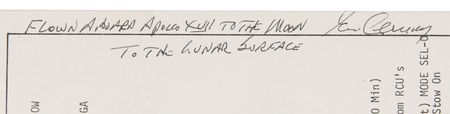 FLOWN ABOARD APOLLO XVII TO THE MOON
TO THE LUNAR SURFACE
OW
GA
0 Min)
om RCU's
t) MODE SEL-O
Stow On